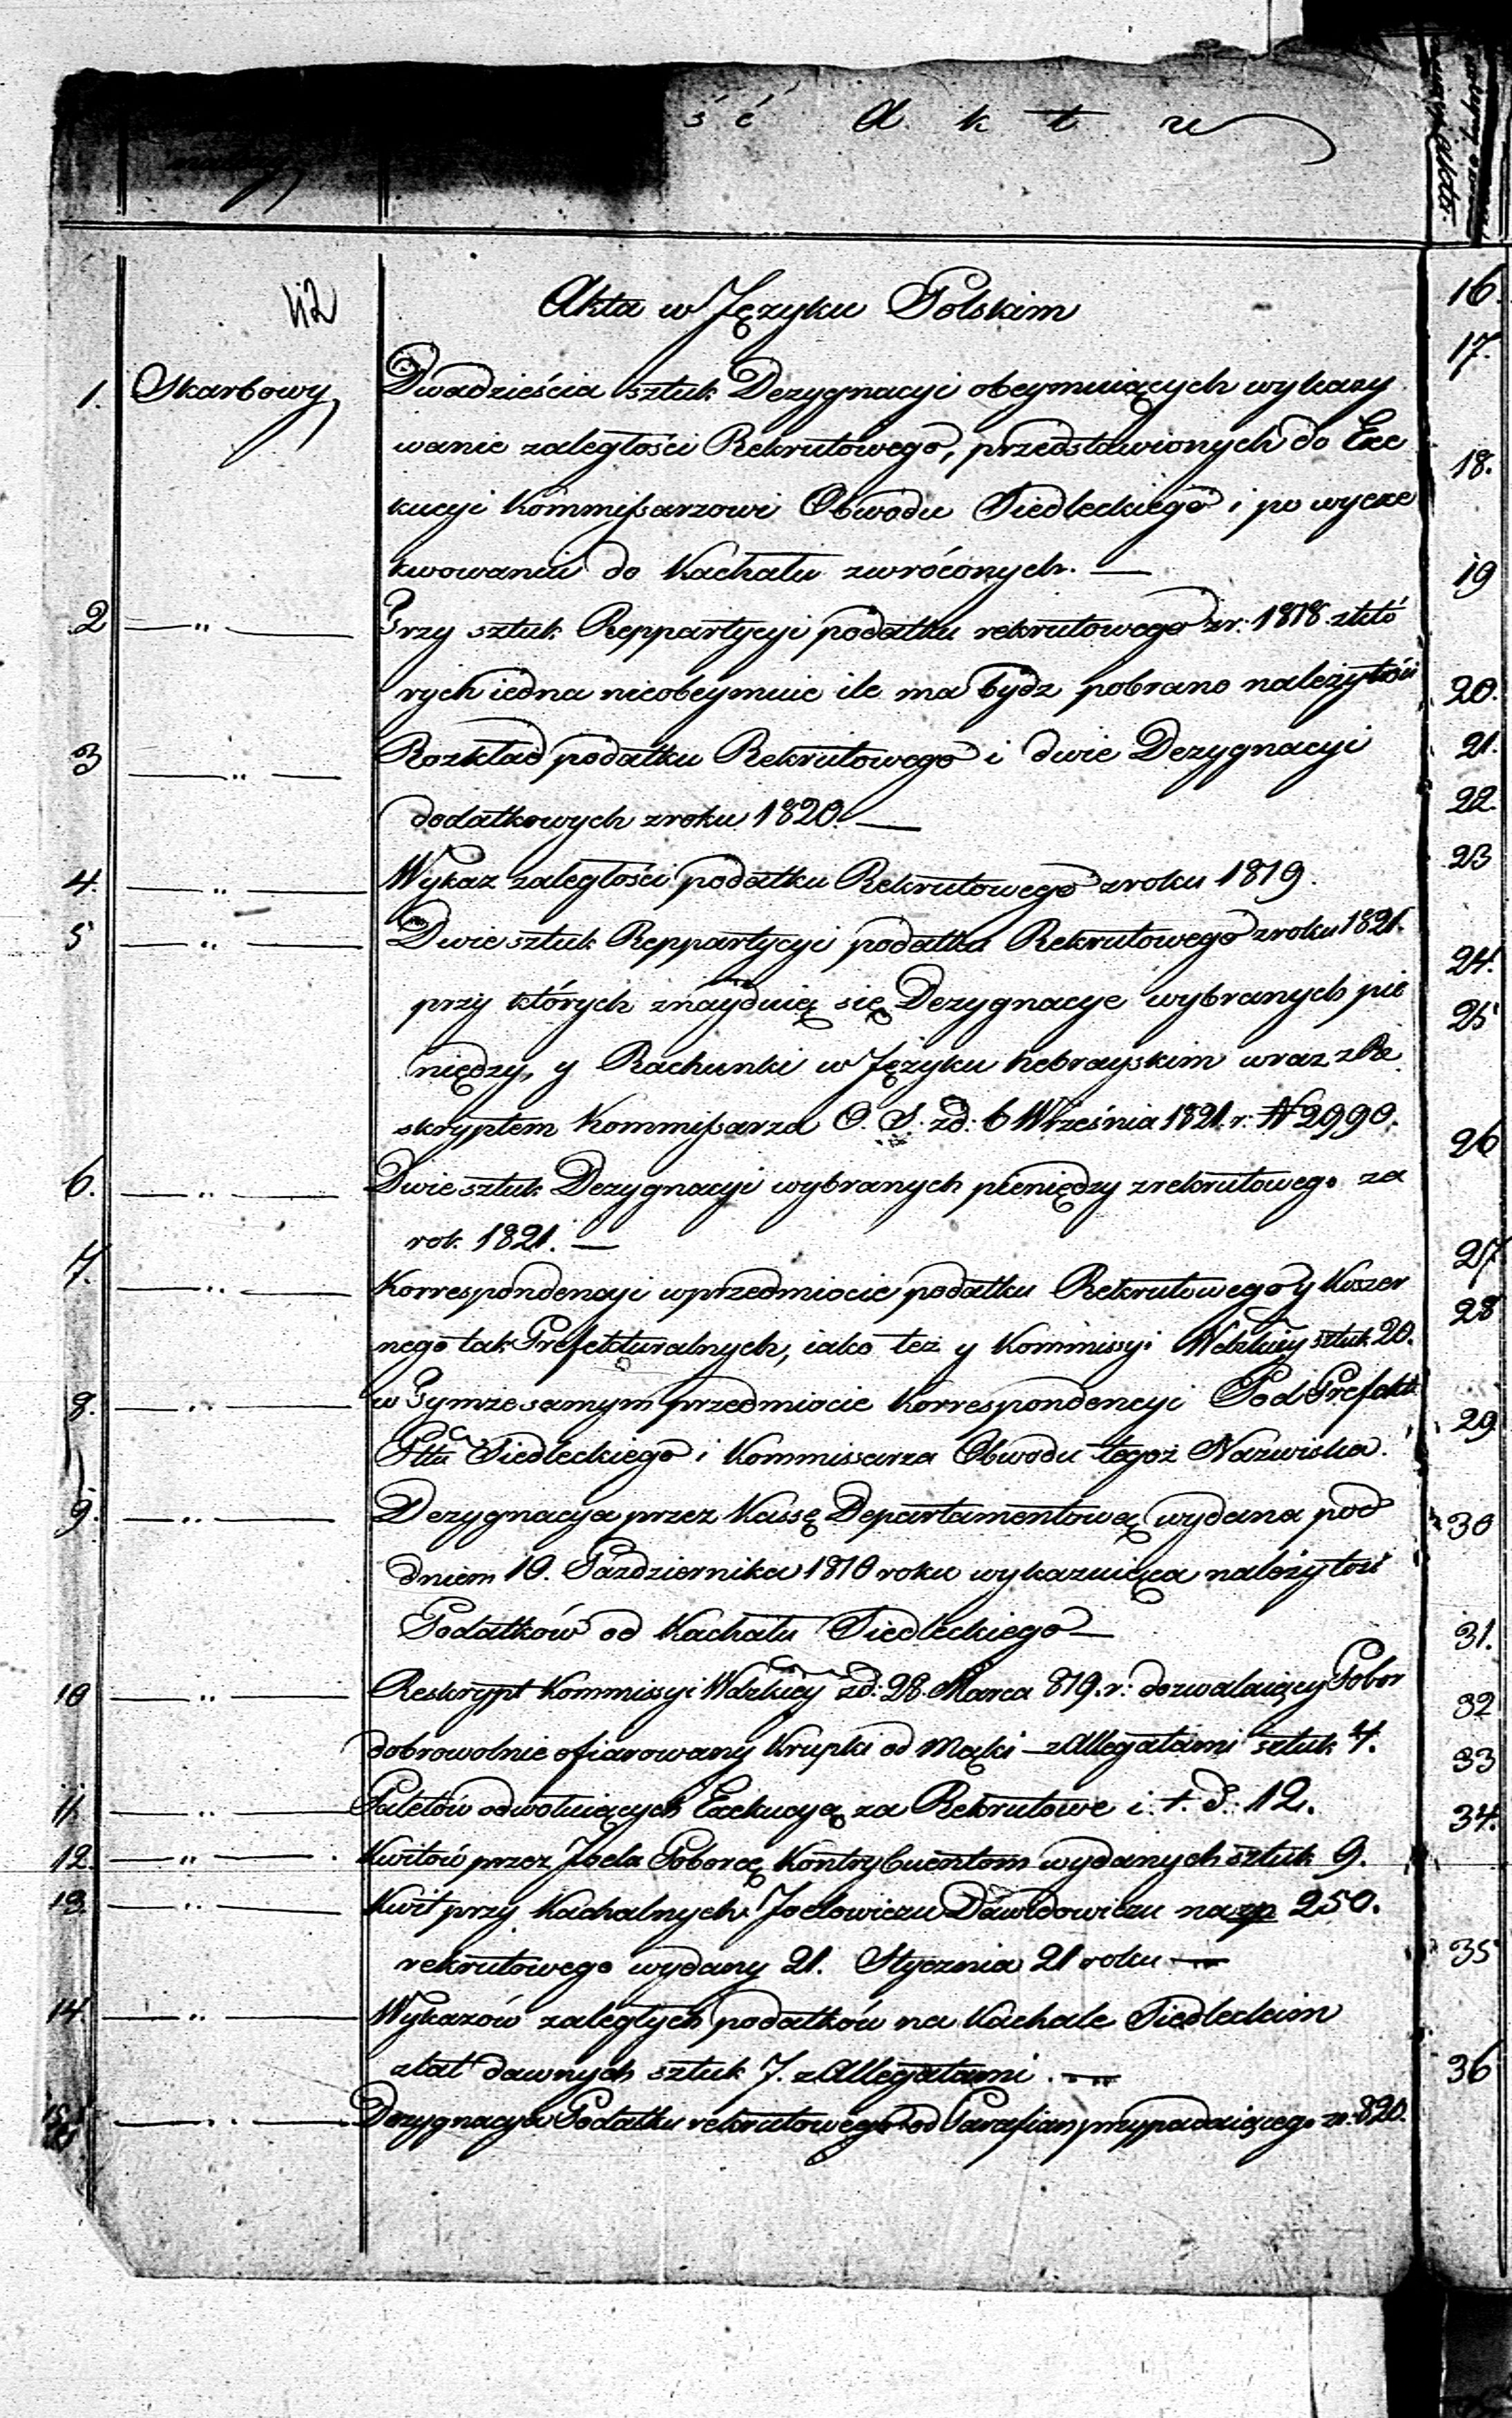 ść Aktu
112
Akta w Języku Polskim
1. Skarbowy Dwadzieścia sztuk Dezygnacyi obeymuiących wykazy
wanie zaległości Rekrutowego, przedstawionych do Exe
kucyi Kommissarzowi Obwodu Siedleckiego i po wyexe
kwowaniu do Kachału zwróconych. —
2 — „ — Trzy sztuk Reppartycyi podatku rekrutowego zr: 1818 zktó
rych iedna nieobeymuie ile ma bydz pobrano należytości
3 — „ — Rozkład podatku Rekrutowego i dwie Dezygnacyi
dodatkowych zroku 1820. —
4. — „ — Wykaz zaległości podatku Rekrutowego zroku 1819.
5 — „ — Dwie sztuk Reppartycyi podatku Rekrutowego zroku 1821.
przy których znayduią się Dezygnacye wybranych pie
niędzy, y Rachunki w Języku hebrayskim wraz zRe
skryptem Kommissarza O. S. zd: 6 Września 1821. r. N 2990.
6. — „ — Dwie sztuk Dezygnacyi wybranych pieniędzy zrekrutowego za
rok 1821. —
7. — „ — Korrespondencyi wprzedmiocie podatku Rekrutowego y Koszer
nego tak Prefekturalnych, iako też y Kommissyi Wdzkiey sztuk 20.
8. — „ — w Tymze samym przedmiocie Korrespondencyi Pod Prefekt
Pttu Siedleckiego i Kommissarza Obwodu tegoż Nazwiska.
9. — „ — Dezygnacya przez Kassę Departamentową wydana pod
dniem 10. Października 1810 roku wykazuiąca należytość
Podatków od Kachału Siedleckiego —
10 — „ — Reskrypt Kommissyi Wdzkiey zd: 28. Marca 819. r: dozwalaiący Pobor
dobrowolnie ofiarowany Krupki od Mąki — z Allegatami sztuk 4.
11. — „ — Paletów odwołuiących Exekucyą za Rekrutowe i. t. d. 12.
12. — „ — Kwitów przez Joela Poborcę Kontrybuentom wydanych sztuk 9.
13. — „ — Kwit przy Kachalnych Joelowiczu Dawidowiczu na zp 250.
rekrutowego wydany 21. Stycznia 21 roku —
14. — „ — Wykazów zaległych podatków na Kachale Siedleckim
zlat dawnych sztuk 7. z Allegatami. —
15. — „ — Dezygnacya Podatku rekrutowego od Parafian przypadaiącego zr. 820.
aktu.
16.
17.
18.
19
20.
21.
22.
23
24.
25
26
27.
28
29.
30
31.
32
33
34.
35
36